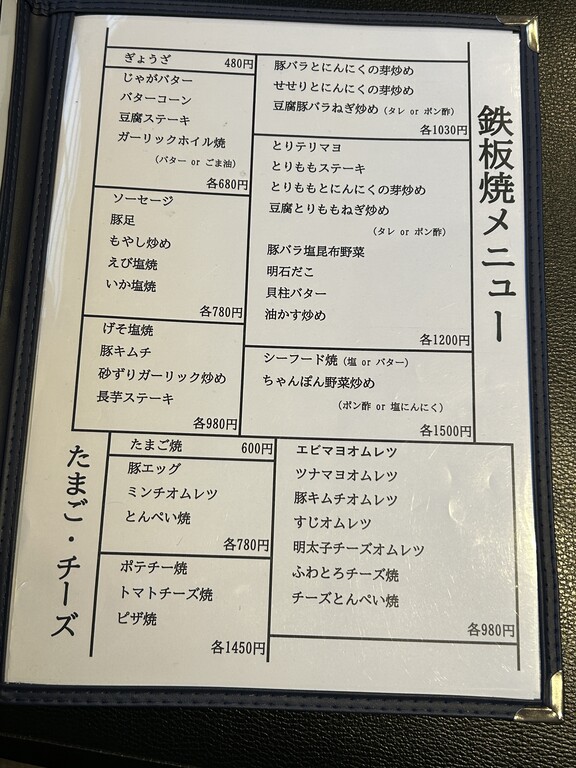 鉄板焼メニュー
ぎょうざ 480円
じゃがバター
バターコーン
豆腐ステーキ
ガーリックホイル焼
(バター or ごま油)
各680円
ソーセージ
豚足
もやし炒め
えび塩焼
いか塩焼
各780円
げそ塩焼
豚キムチ
砂ずりガーリック炒め
長芋ステーキ
各980円
豚バラとにんにくの芽炒め
せせりとにんにくの芽炒め
豆腐豚バラねぎ炒め (タレ or ポン酢)
各1030円
とりテリマヨ
とりももステーキ
とりももとにんにくの芽炒め
豆腐とりももねぎ炒め
(タレ or ポン酢)
豚バラ塩昆布野菜
明石だこ
貝柱バター
油かす炒め
各1200円
シーフード焼 (塩 or バター)
ちゃんぽん野菜炒め
(ポン酢 or 塩にんにく)
各1500円
たまご・チーズ
たまご焼 600円
豚エッグ
ミンチオムレツ
とんぺい焼
各780円
ポテチー焼
トマトチーズ焼
ピザ焼
各1450円
エビマヨオムレツ
ツナマヨオムレツ
豚キムチオムレツ
すじオムレツ
明太子チーズオムレツ
ふわとろチーズ焼
チーズとんぺい焼
各980円